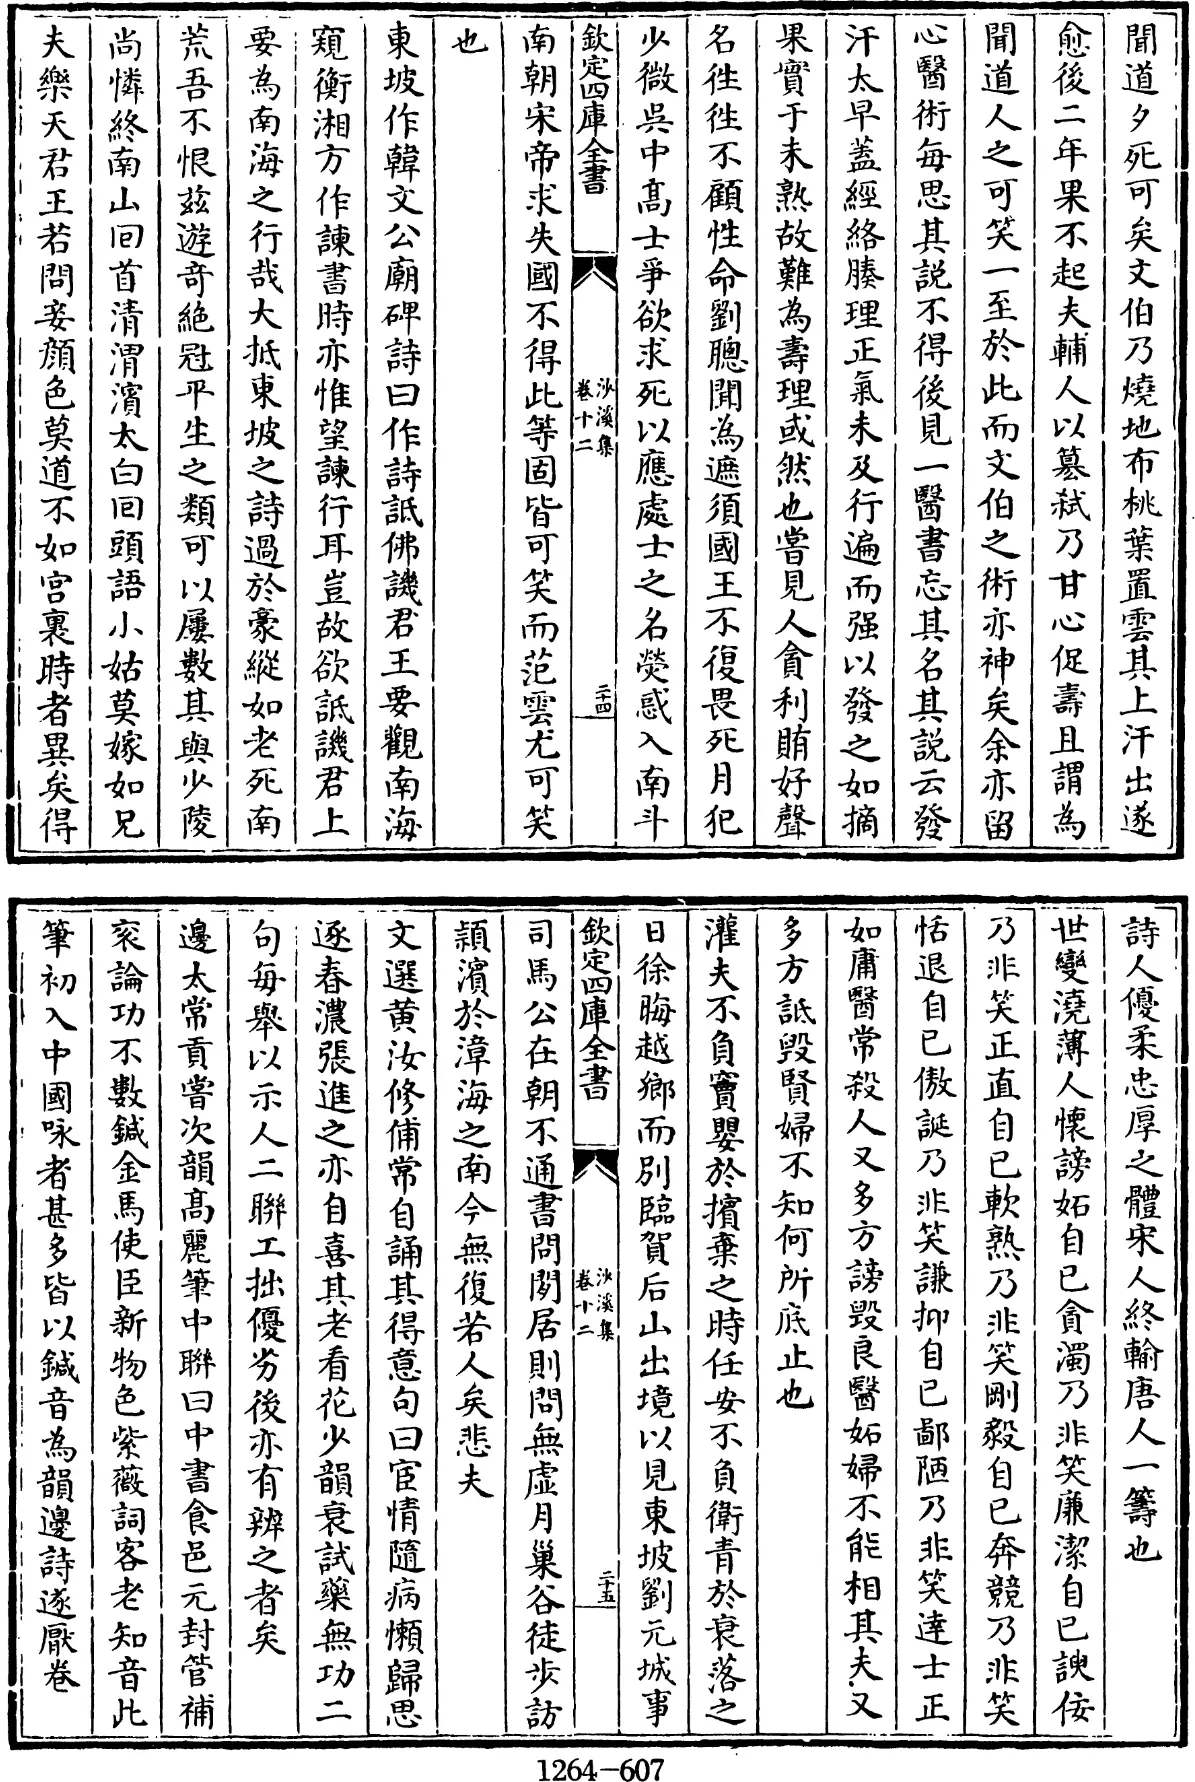 聞道夕死可矣文伯乃燒地布桃葉置雲其上汗出遂
愈後二年果不起夫輔人以簒弑乃甘心促壽且謂為
聞道人之可笑一至於此而文伯之術亦神矣余亦留
心醫術毎思其説不得後見一醫書忘其名其説云發
汗太早蓋經絡腠理正氣未及行遍而强以發之如摘
果實于未熟故難為壽理或然也嘗見人貪利賄好聲
名徃徃不顧性命劉聰聞為遮須國王不復畏死月犯
少微吳中髙士爭欲求死以應處士之名熒惑入南斗
欽定四庫全書
沙溪集
卷十二
二十四
南朝宋帝求失國不得此等固皆可笑而范雲尤可笑
也
東坡作韓文公廟碑詩曰作詩詆佛譏君王要觀南海
窺衡湘方作諫書時亦惟望諫行耳豈故欲詆譏君上
要為南海之行哉大抵東坡之詩過於豪縱如老死南
荒吾不恨兹遊奇絶冠平生之類可以屢數其與少陵
尚憐終南山回首清渭濱太白回頭語小姑莫嫁如兄
夫樂天君王若問妾顔色莫道不如宫裏時者異矣得
詩人優柔忠厚之體宋人終輸唐人一籌也
世變澆薄人懷謗妬自已貪濁乃非笑廉潔自已諛佞
乃非笑正直自已軟熟乃非笑剛毅自已奔競乃非笑
恬退自已傲誕乃非笑謙抑自已鄙陋乃非笑達士正
如庸醫常殺人又多方謗毁良醫妬婦不能相其夫又
多方詆毁賢婦不知何所底止也
灌夫不負竇嬰於擯棄之時任安不負衛青於衰落之
日徐晦越鄉而別臨賀后山出境以見東坡劉元城事
欽定四庫全書
沙溪集
卷十二
二十五
司馬公在朝不通書問閒居則問無虚月巢谷徒步訪
頴濱於漳海之南今無復若人矣悲夫
文選黄汝修俌常自誦其得意句曰宦情隨病懶歸思
逐春濃張進之亦自喜其老看花少韻衰試藥無功二
句毎舉以示人二聯工拙優劣後亦有辨之者矣
邊太常貢嘗次韻髙麗筆中聨曰中書食邑元封管補
衮論功不數鍼金馬使臣新物色紫薇詞客老知音此
筆初入中國咏者甚多皆以鍼音為韻邊詩遂厭卷
1264-607